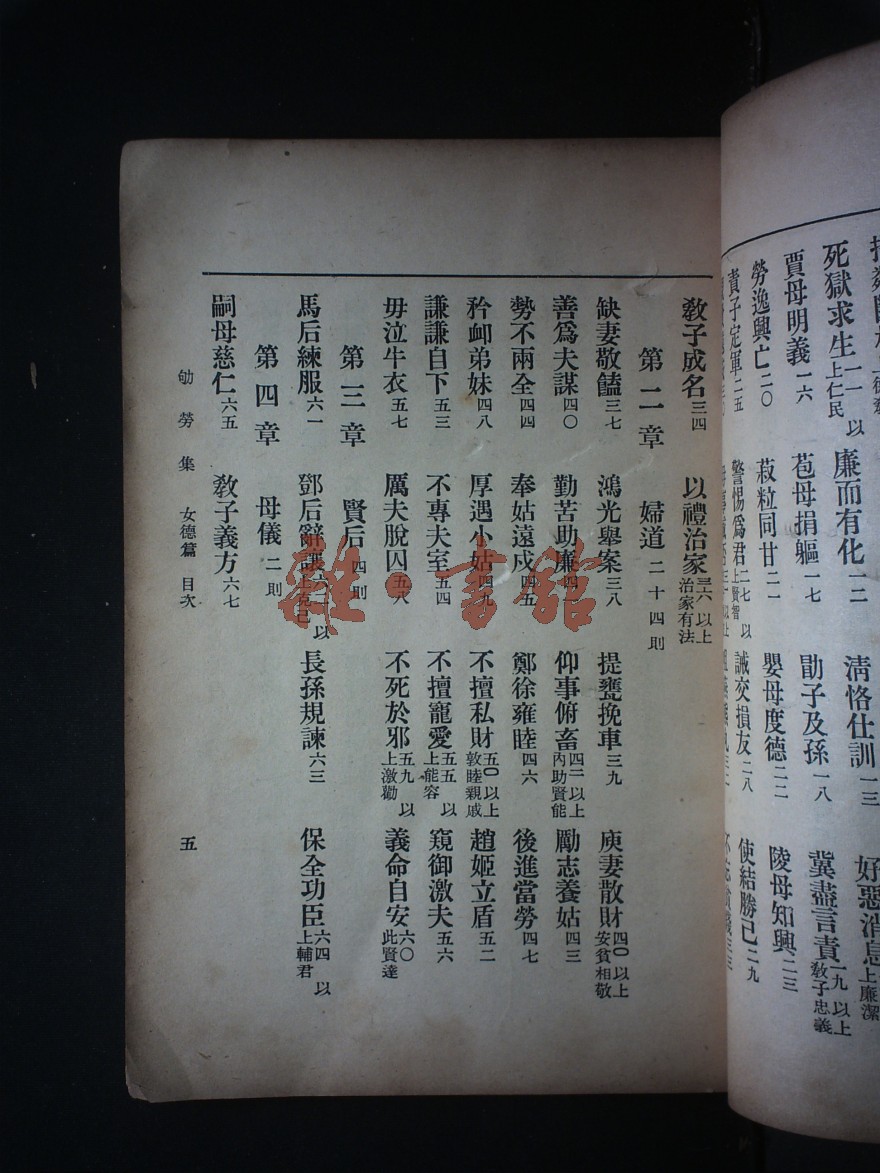 死獄求生一一以上仁民　廉而有化一二　清恪仕訓一三　好惡消息上廉潔
賈母明義一六　苞母捐軀一七　勖子及孫一八　冀盡言責一九以上教子忠義
勞逸興亡二〇　菽粒同甘二一　嬰母度德二二　陵母知興二三
責子定軍二五　警惕爲君二七以上賢智　誠交損友二八　使結勝己二九
教子成名三四　以禮治家三六以上治家有法
第二章　婦道二十四則
缺妻敬饁三七　鴻光舉案三八　提甕挽車三九　庾妻散財四〇以上安貧相敬
善爲夫謀四〇　勤苦助廉四一　仰事俯畜四二以上內助賢能　勵志養姑四三
勢不兩全四四　奉姑遠戍四五　鄭徐雍睦四六　後進當勞四七
矜卹弟妹四八　厚遇小姑四九　不擅私財五〇以上敦睦親戚　趙姬立盾五二
謙謙自下五三　不專夫室五四　不擅寵愛五五以上能容　窺御激夫五六
毋泣牛衣五七　厲夫脫囚五八　不死於邪五九以上激勸　義命自安六〇此賢達
第三章　賢后四則
馬后練服六一　鄧后辭讓六二以上克己　長孫規諫六三　保全功臣六四以上輔君
第四章　母儀二則
嗣母慈仁六五　敎子義方六七
劬勞集　女德篇　目次　五
雜·書館